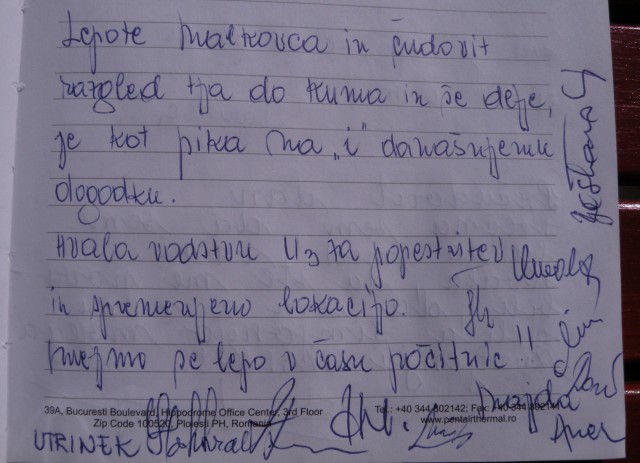 Lepote Malkovca in čudovit
razgled tja do Kuma in še delje,
je kot pika na „i" današnjemu
dogodku.
Hvala vodstvu U3 za popestritev
in spremenjeno lokacijo.
Imejmo se lepo v času počitnic!!
39A, Bucuresti Boulevard, Hippodrome Office Center, 3rd Floor
Zip Code 100520, Ploiesti PH, Romania
Tel.: +40 344 802142; Fax: +40 344 802141
www.pentairthermal.ro
UTRINEK
Majda